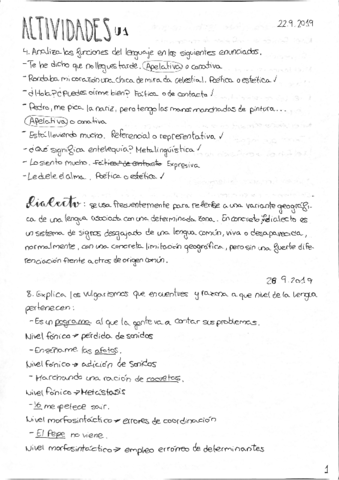 ACTIVIDADES U1
22.9.2019
4. Analiza las funciones del lenguaje en los siguientes enunciados.
- Te he dicho que no llegues tarde. Apelativa o conativa
- Rondaba mi corazón una chica de mirada celestial. Poética o estética ✓
- ¿Hola? ¿Puedes oírme bien? Fática o de contacto ✓
- Pedro, me pica la nariz, pero tengo las manos manchadas de pintura...
Apelativa o conativa
- Está lloviendo mucho. Referencial o representativa ✓
- ¿Qué significa entelequia? Metalingüística ✓
- Lo siento mucho. Fática o de contacto Expresiva
- Le duele el alma. Poética o estética ✓
Dialecto: se usa frecuentemente para referirse a una variante geográfi-
ca de una lengua asociada con una determinada zona. En concreto, dialecto es
un sistema de signos desgajado de una lengua común, viva o desaparecida,
normalmente, con una concreta limitación geográfica, pero sin una fuerte dife-
renciación frente a otros de origen común.
26.9.2019
8. Explica los vulgarismos que encuentres y razona a que nivel de la lengua
pertenecen:
- Es un pograma al que la gente va a contar sus problemas.
Nivel fónico → pérdida de sonidos
- Enséñame las afotos.
Nivel fónico → adición de sonidos
- Marchando una ración de cocretas.
Nivel fónico → Metástasis
- Yo me apetece salir.
Nivel morfosintáctico → errores de coordinación
- El Pepe no viene.
Nivel morfosintáctico → empleo erróneo de determinantes
1